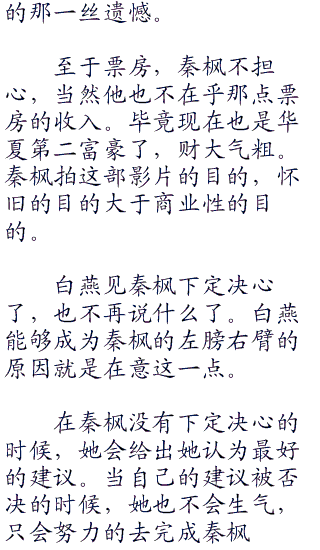 的那一丝遗憾。
至于票房，秦枫不担
心，当然他也不在乎那点票
房的收入。毕竟现在也是华
夏第二富豪了，财大气粗。
秦枫拍这部影片的目的，怀
旧的目的大于商业性的目
的。
白燕见秦枫下定决心
了，也不再说什么了。白燕
能够成为秦枫的左膀右臂的
原因就是在意这一点。
在秦枫没有下定决心的
时候，她会给出她认为最好
的建议。当自己的建议被否
决的时候，她也不会生气，
只会努力的去完成秦枫